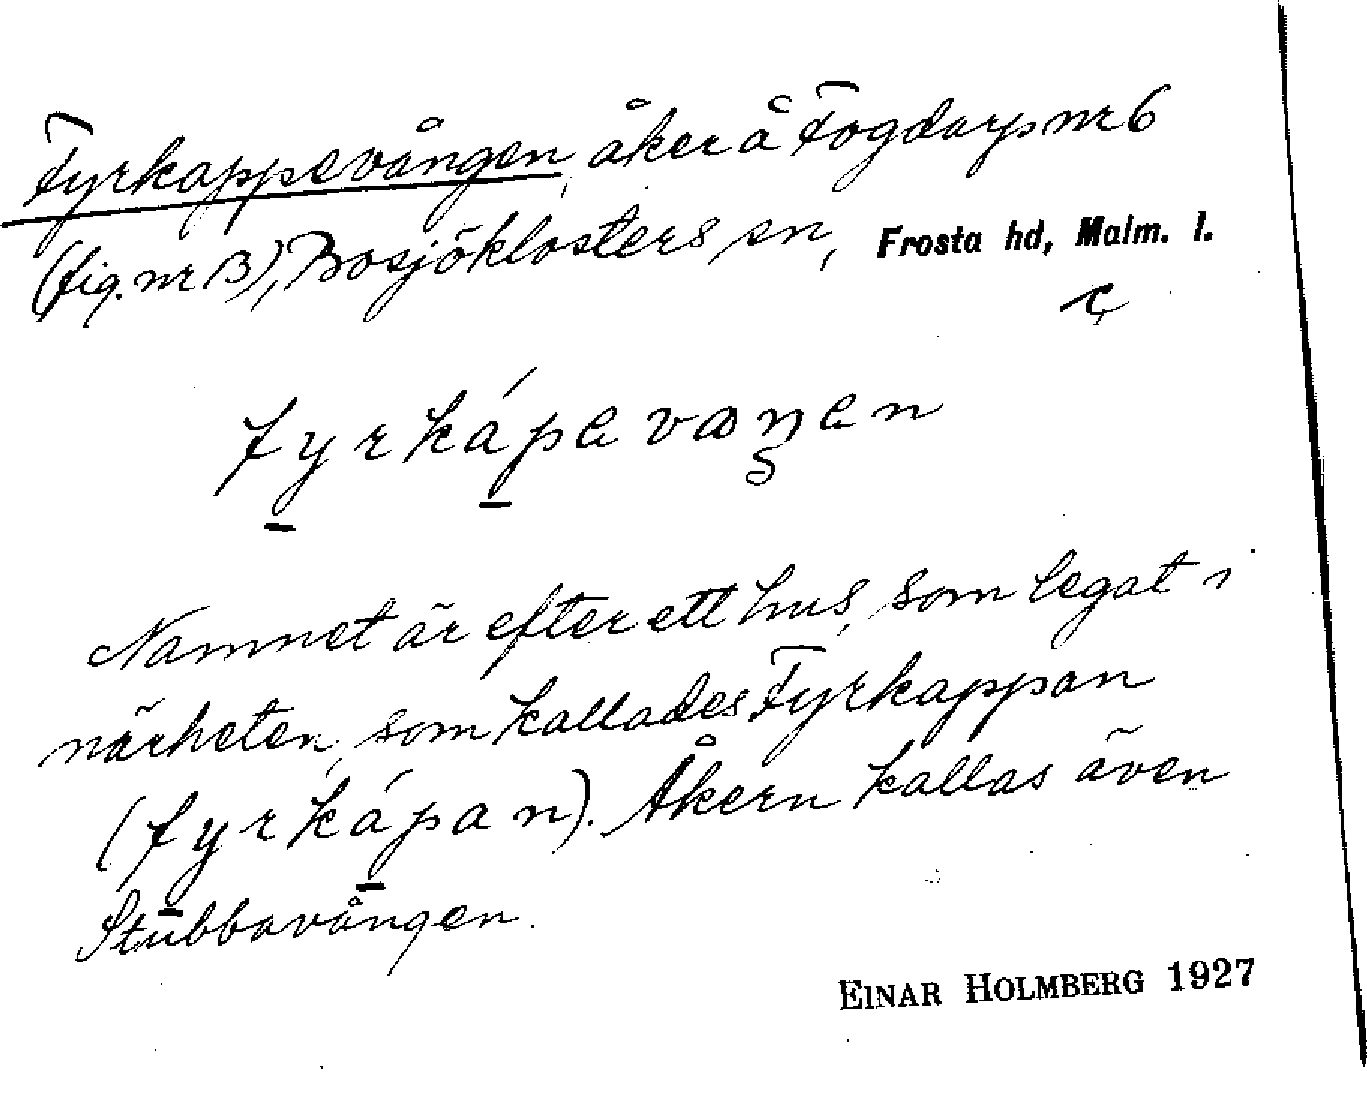 Fyrkappevången, åker å Fogdarp nr 6
(fig. nr 13), Bosjöklosters sn, Frosta hd, Malm. l.
fyrkápevaŋen
Namnet är efter ett hus, som legat i
närheten, som kallades Fyrkappan
(fyrkápan). Åkern kallas även
Stubbavången.
EINAR HOLMBERG 1927